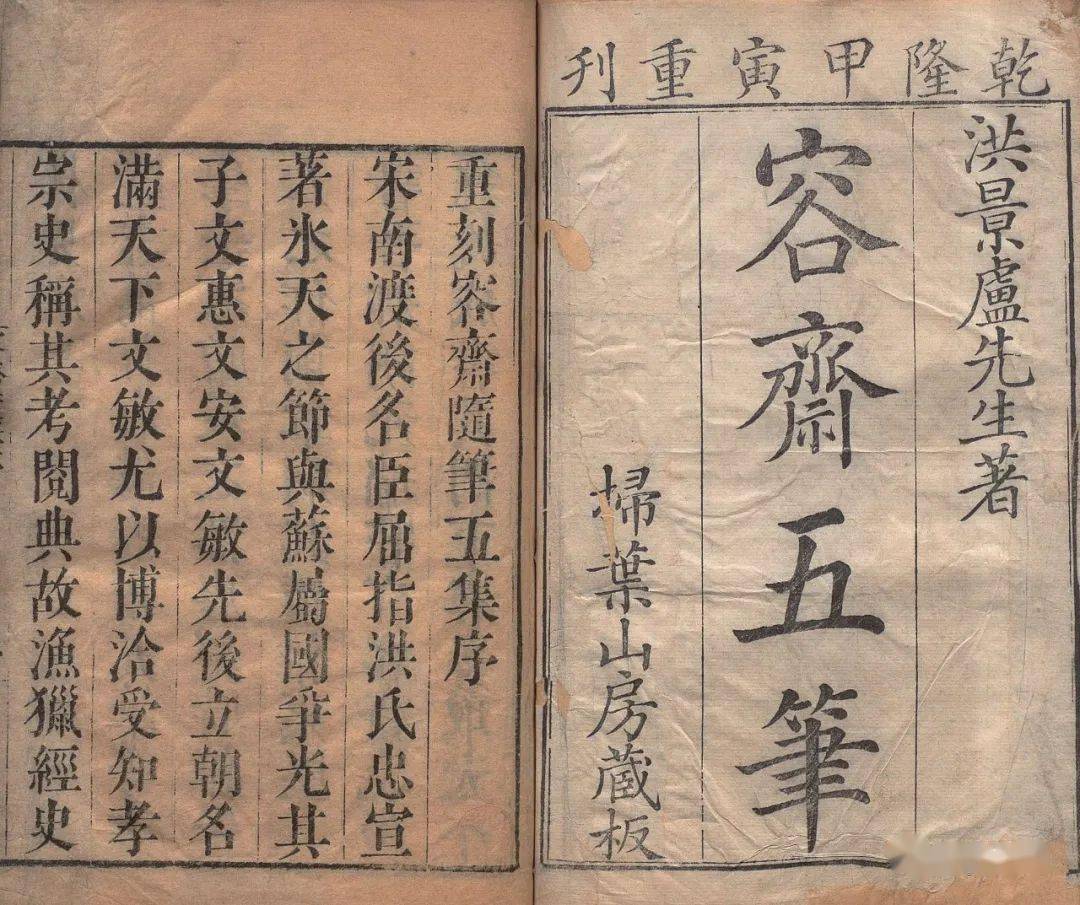 乾隆甲寅重刊
洪景盧先生著
容齋五筆
掃葉山房藏板
重刻容齋隨筆五集序
宋南渡後名臣屈指洪氏忠宣
著氷天之節與蘇屬國爭光其
子文惠文安文敏先後立朝名
滿天下文敏尤以博洽受知孝
宗史稱其考閱典故漁獵經史